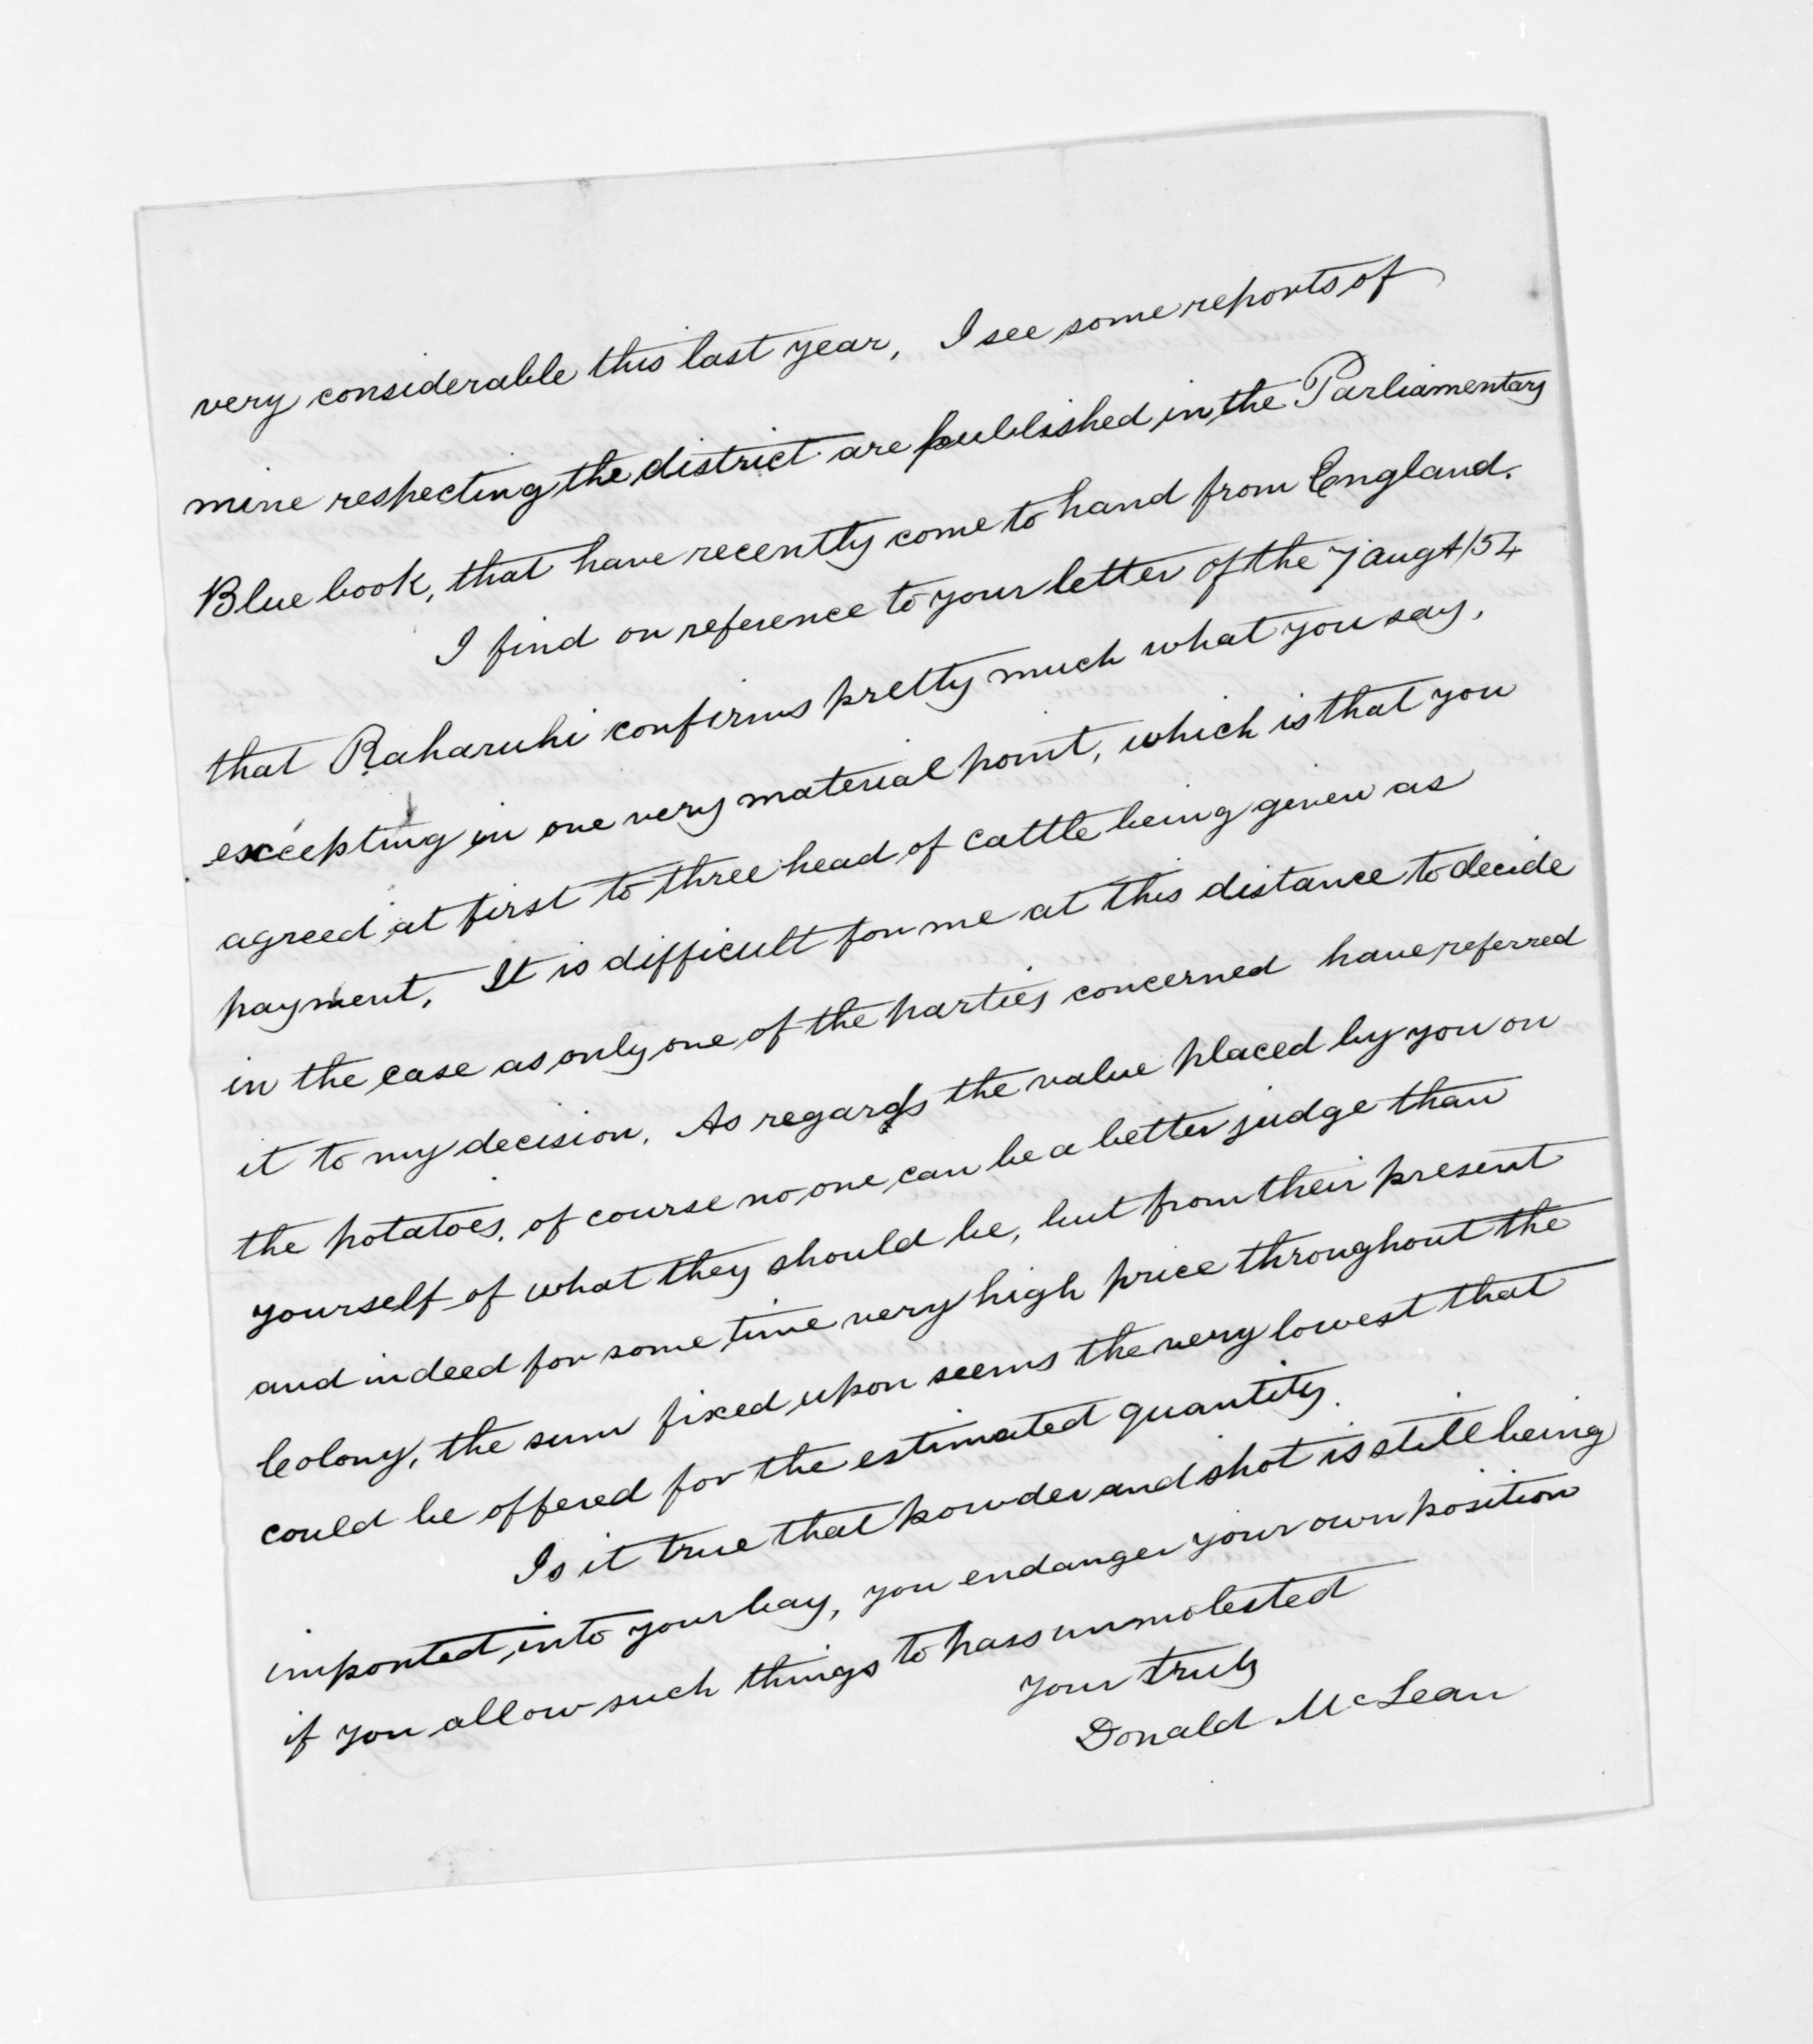 very considerable this last year, I see some reports of
mine respecting the district are published in the Parliamentary
Blue book, that have recently come to hand from England.
I find on reference to your letter of the 7 augt/54
that Raharuhi confirms pretty much what you say,
excepting in one very material point, which is that you
agreed at first to three head of cattle being given as
payment. It is difficult for me at this distance to decide
in the case as only one of the parties concerned have referred
it to my decision. As regards the value placed by you on
the potatoes, of course no one can be a better judge than
yourself of what they should be, but from their present
and indeed for some time very high price throughout the
Colony, the sum fixed upon seems the very lowest that
could be offered for the estimated quantity.
Is it true that powder and shot is still being
imported into your bay, you endanger your own position
if you allow such things to pass unmolested
your truly
Donald McLean